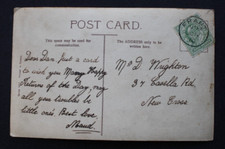 POST CARD.
This space may be used for
correspondence.
The ADDRESS only to be
written here.
Dear Dan Just a card
to wish you Many Happy
Returns of the Day, very
all you
little one. Best love
Maud
Mr D. Wrighton
37 Casella Rd.
New Cross